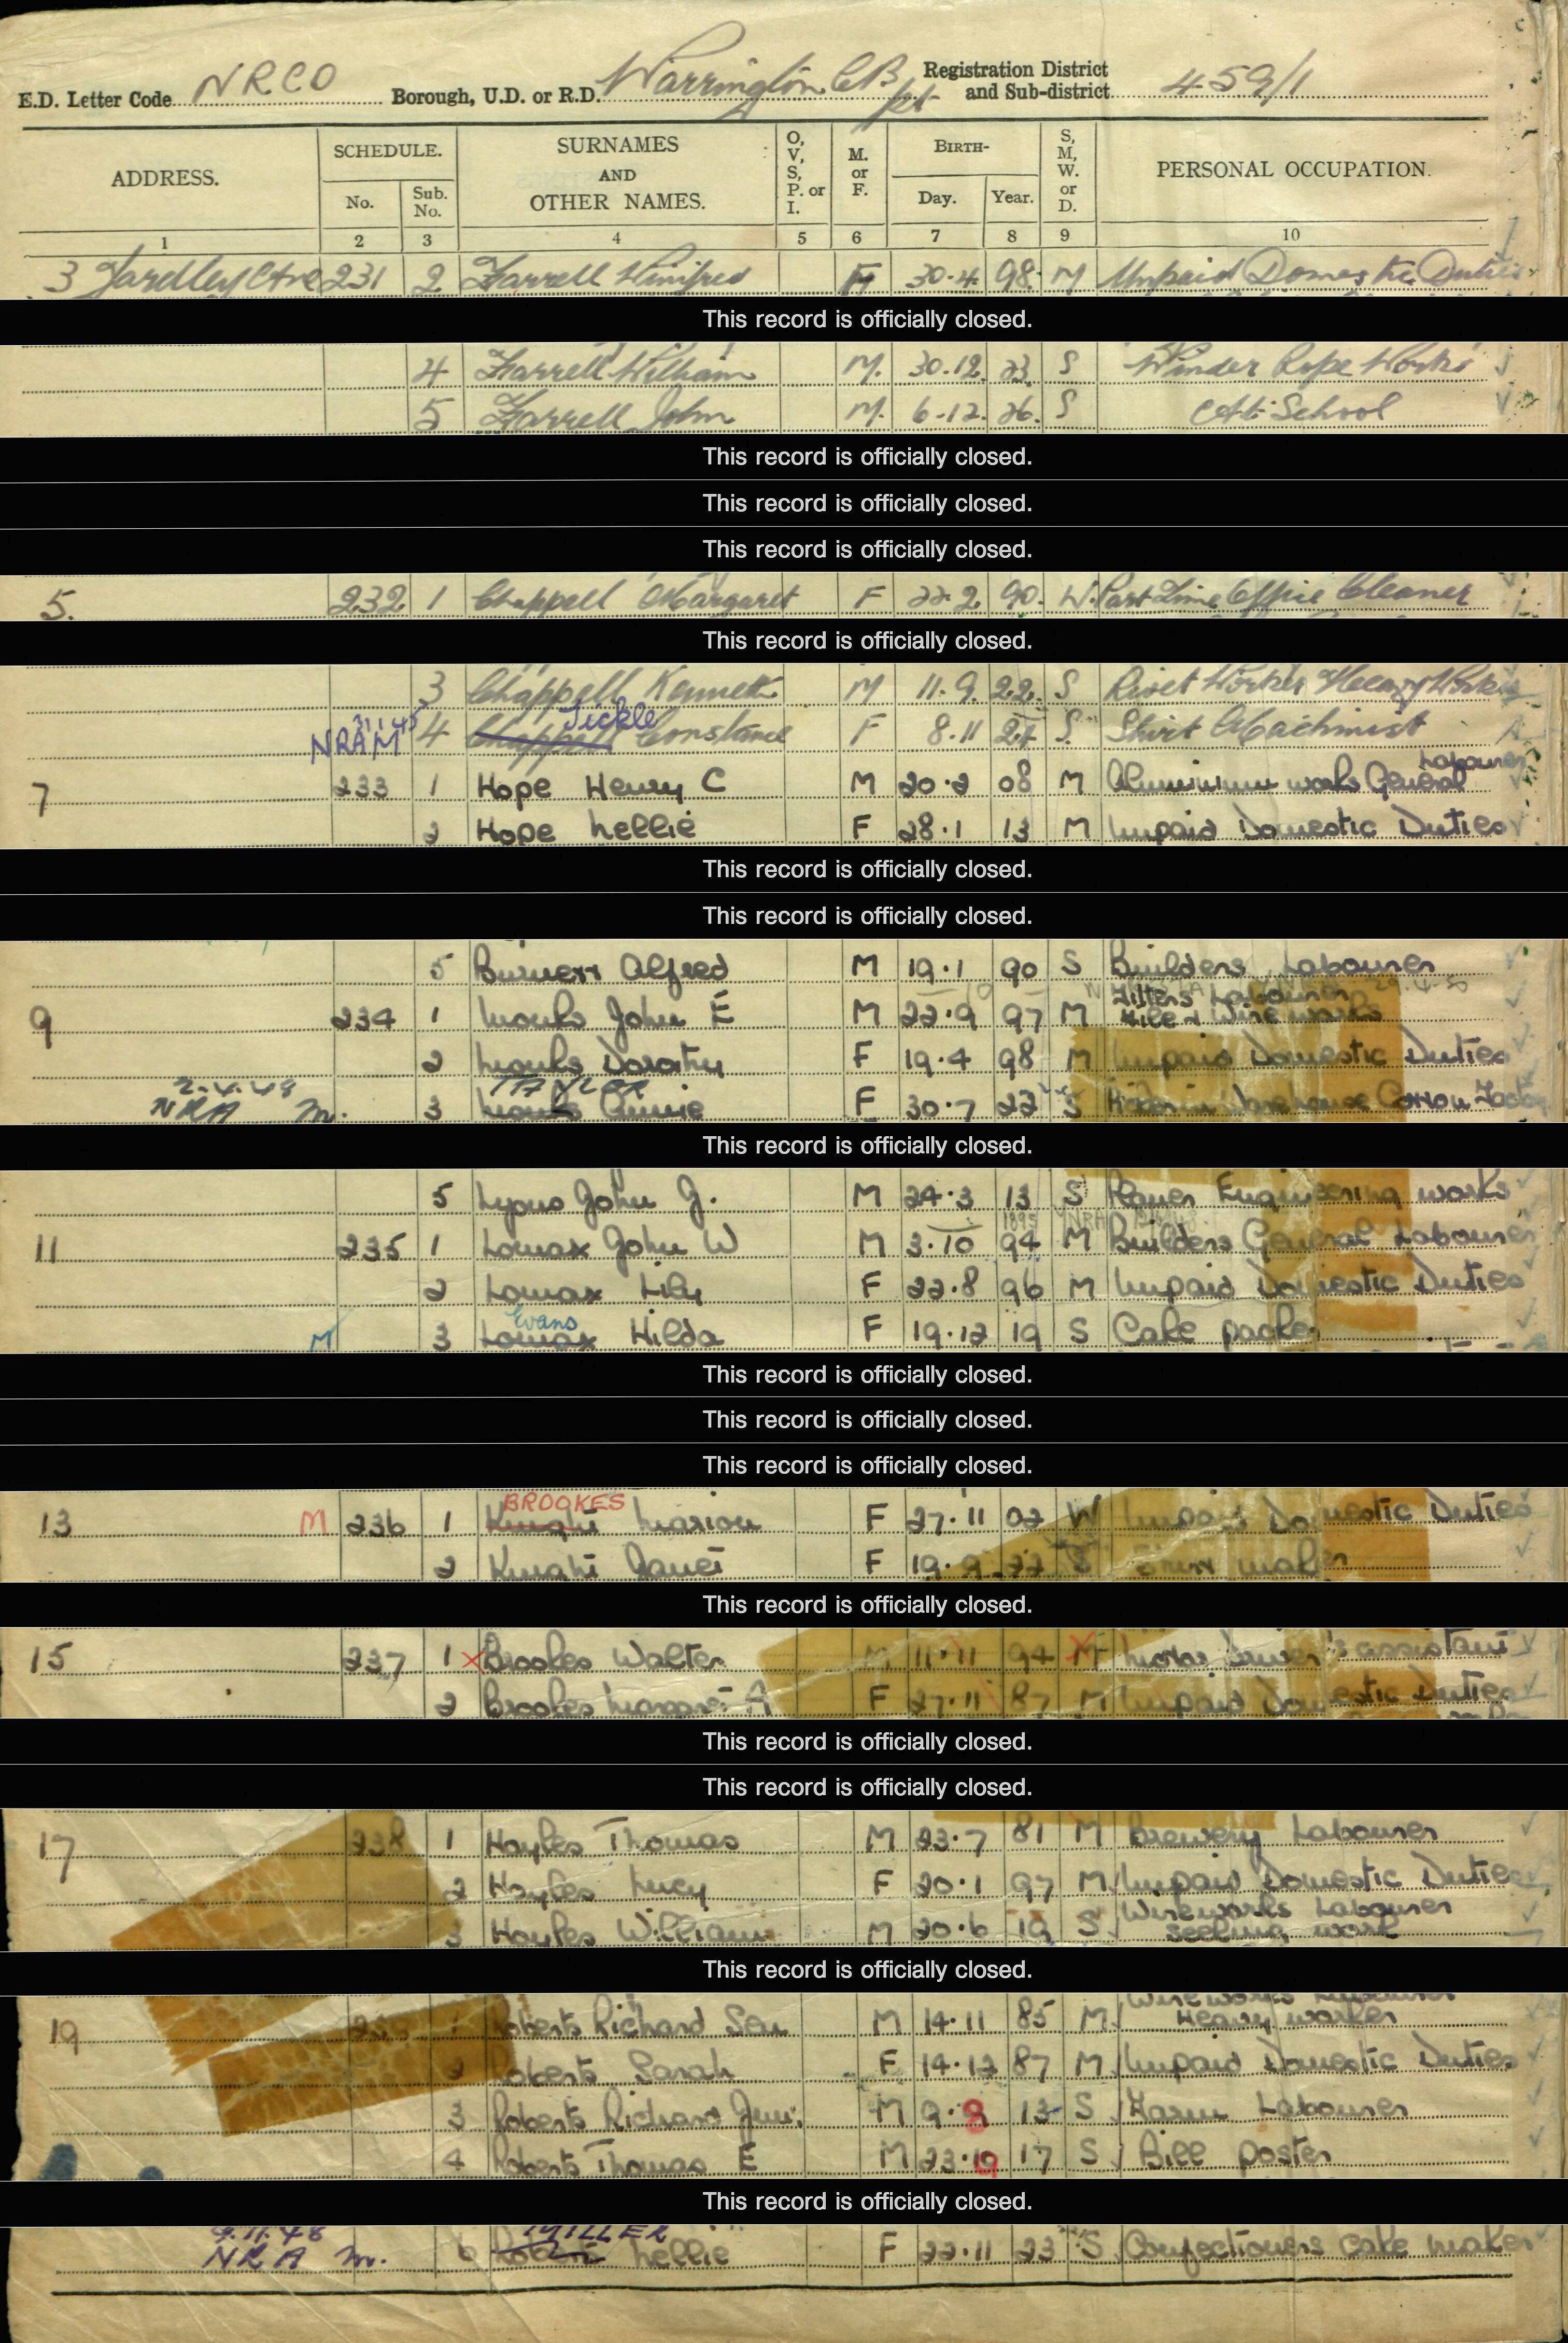 E.D. Letter Code NRCO Borough, U.D. or R.D. Warrington C.B. pt Registration District and Sub-district 459/1
ADDRESS. SCHEDULE. No. Sub. No. SURNAMES AND OTHER NAMES. O, V, S, P. or I. M. or F. BIRTH- Day. Year. S, M, W. or D. PERSONAL OCCUPATION.
1 2 3 4 5 6 7 8 9 10
3 Yardley Ave 231 2 Farrell Winifred F 30.4. 98. M Unpaid Domestic Duties
This record is officially closed.
4 Farrell William M. 30.12. 23. S Winder Rope Works
5 Farrell John M. 6.12. 26. S At School
This record is officially closed.
This record is officially closed.
This record is officially closed.
5. 232 1 Chappell Margaret F 22.2. 90. W. Part Time Office Cleaner
This record is officially closed.
3 Chappell Kenneth M 11.9. 22. S Rivet Worker Heavy Work
31.1.45 Tickle
NRA M 4 Chappell Constance F 8.11 24 S. Shirt Machinist
Labourer
7 233 1 Hope Henry C M 20.2 08 M Aluminium works General
2 Hope Nellie F 28.1 13 M Unpaid Domestic Duties
This record is officially closed.
This record is officially closed.
5 Burnett Alfred M 19.1 90 S Builders Labourer
Fitters Labourer
9 234 1 Monks John E M 22.9 97 M Wire works
2 Monks Dorothy F 19.4 98 M Unpaid Domestic Duties
2.4.48 TAYLOR
NRA M. 3 Monks Annie F 30.7 22 S Warehouse Cotton
This record is officially closed.
5 Lyons John J. M 24.3 13 S Planer Engineering works
1895 NRA
11 235 1 Lomax John W M 3.10 94 M Builders General Labourer
2 Lomax Lily F 22.8 96 M Unpaid Domestic Duties
Evans
M 3 Lomax Hilda F 19.12 19 S Cake packer
This record is officially closed.
This record is officially closed.
This record is officially closed.
BROOKES
13 M 236 1 Knight Marion F 27.11 02 W Unpaid Domestic Duties
2 Knight Janet F 19.9 22 S Shirt maker
This record is officially closed.
15 237 1 X Brookes Walter M 11.11 94 M Motor Driver's assistant
2 Brookes Margaret A F 27.11 87 M Unpaid Domestic Duties
This record is officially closed.
This record is officially closed.
17 238 1 Hayles Thomas M 23.7 81 M Brewery Labourer
2 Hayles Lucy F 20.1 97 M Unpaid Domestic Duties
Wireworks Labourer
3 Hayles William M 20.6 19 S seeking work
This record is officially closed.
Wireworks Labourer
19 239 1 Roberts Richard Sen M 14.11 85 M Heavy worker
2 Roberts Sarah F 14.12 87 M Unpaid Domestic Duties
3 Roberts Richard Jun. M 9.8 13 S Farm Labourer
4 Roberts Thomas E M 23.10 17 S Bill poster
This record is officially closed.
9.11.48 MILLER
NRA m. 6 Roberts Nellie F 22.11 23 S Confectioners cake maker